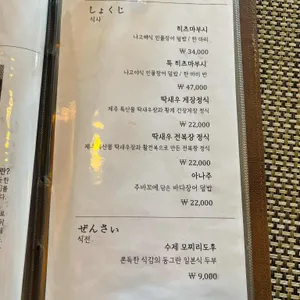 しょくじ
식사
히츠마부시
나고야식 민물장어 덮밥 / 한 마리
₩ 34,000
특 히츠마부시
나고야식 민물장어 덮밥 / 한 마리 반
₩ 47,000
딱새우 게장정식
제주 특산물 딱새우장과 황게 간장게장 정식
₩ 22,000
딱새우 전복장 정식
제주 특산물 딱새우장과 활전복으로 만든 전복장 정식
₩ 22,000
아나주
주바꼬에 담은 바다장어 덮밥
₩ 22,000
ぜんさい
식전
수제 모찌리도후
쫀득한 식감의 동그란 일본식 두부
₩ 9,000